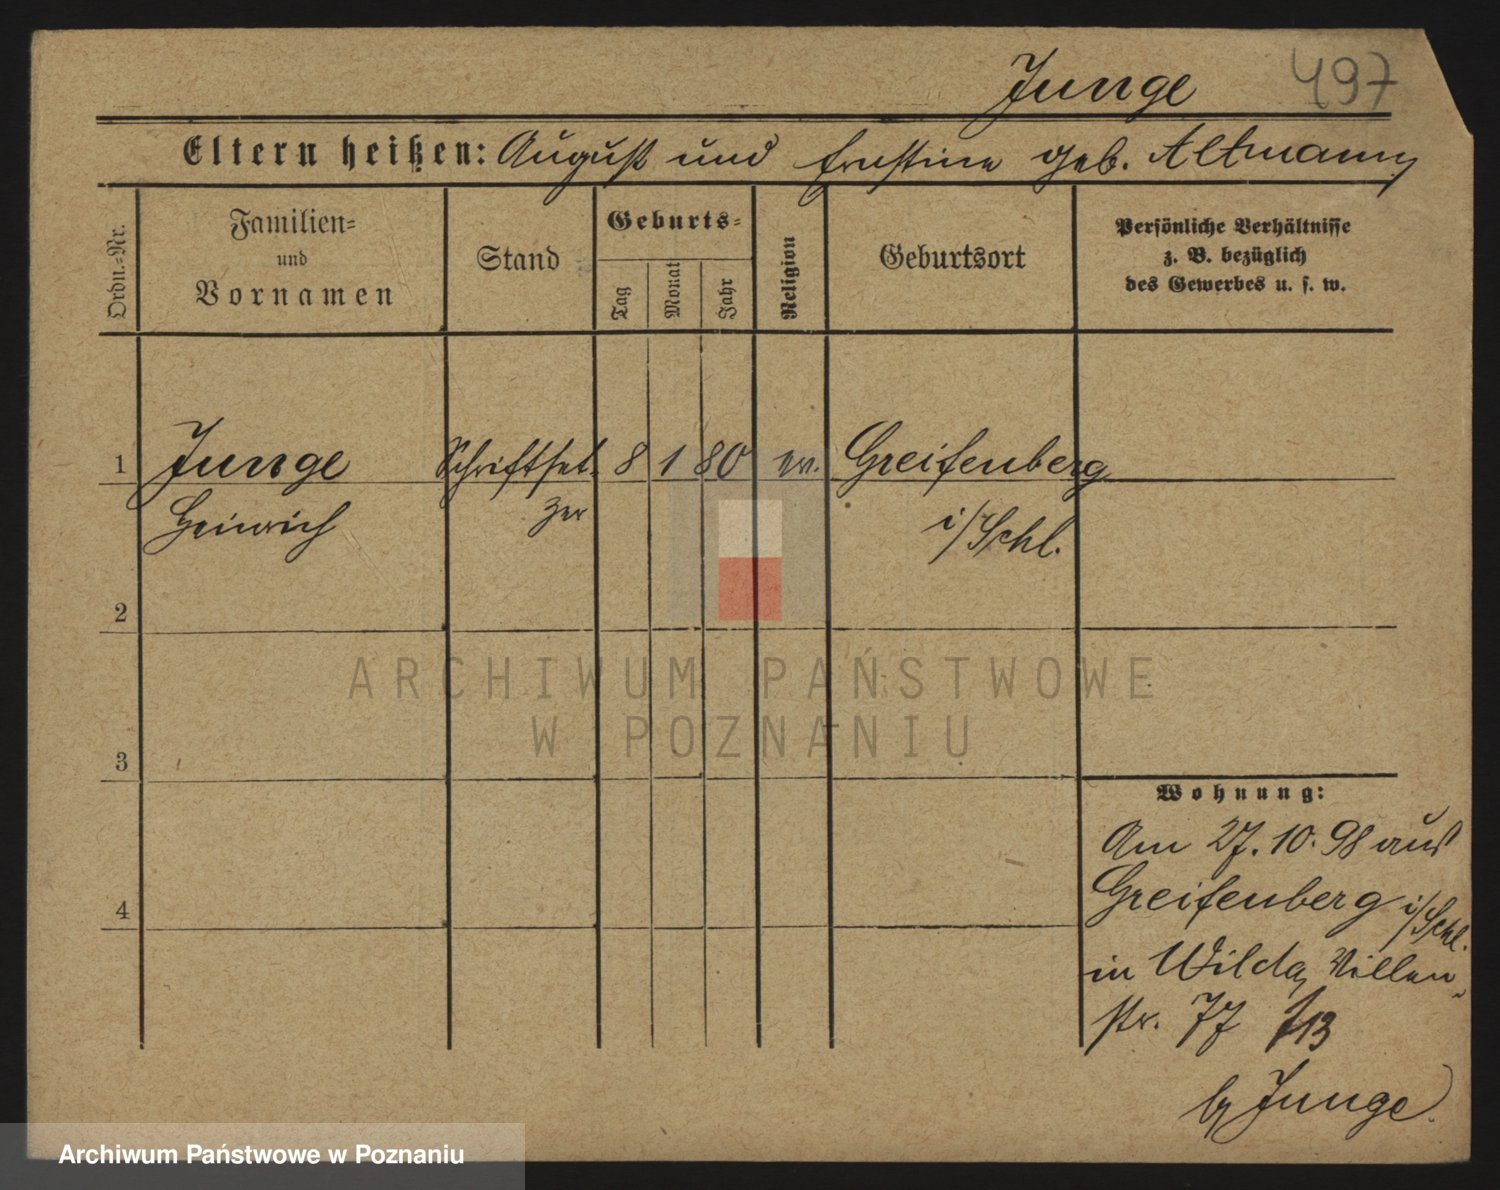 Junge 497
Eltern heißen: August und Ernstine geb. Altmann
Ordn.-Nr.
Familien-
und
Vornamen
Stand
Geburts-
Tag
Monat
Jahr
Religion
Geburtsort
Persönliche Verhältnisse
z. B. bezüglich
des Gewerbes u. s. w.
1 Junge Schriftset- 8 1 80 ev. Greifenberg
Heinrich zer i/Schl.
2
ARCHIWUM PAŃSTWOWE
W POZNANIU
3
Wohnung:
Am 27. 10. 98 aus
Greifenberg i/Schl.
4
in Wilda, Villen-
str. 77
Junge.
Archiwum Państwowe w Poznaniu